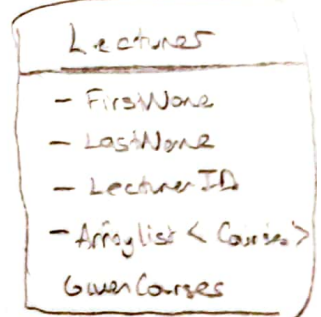 Lecturer
- FirstName
- LastName
- LecturerID
- Arraylist < Courses >
GivenCourses